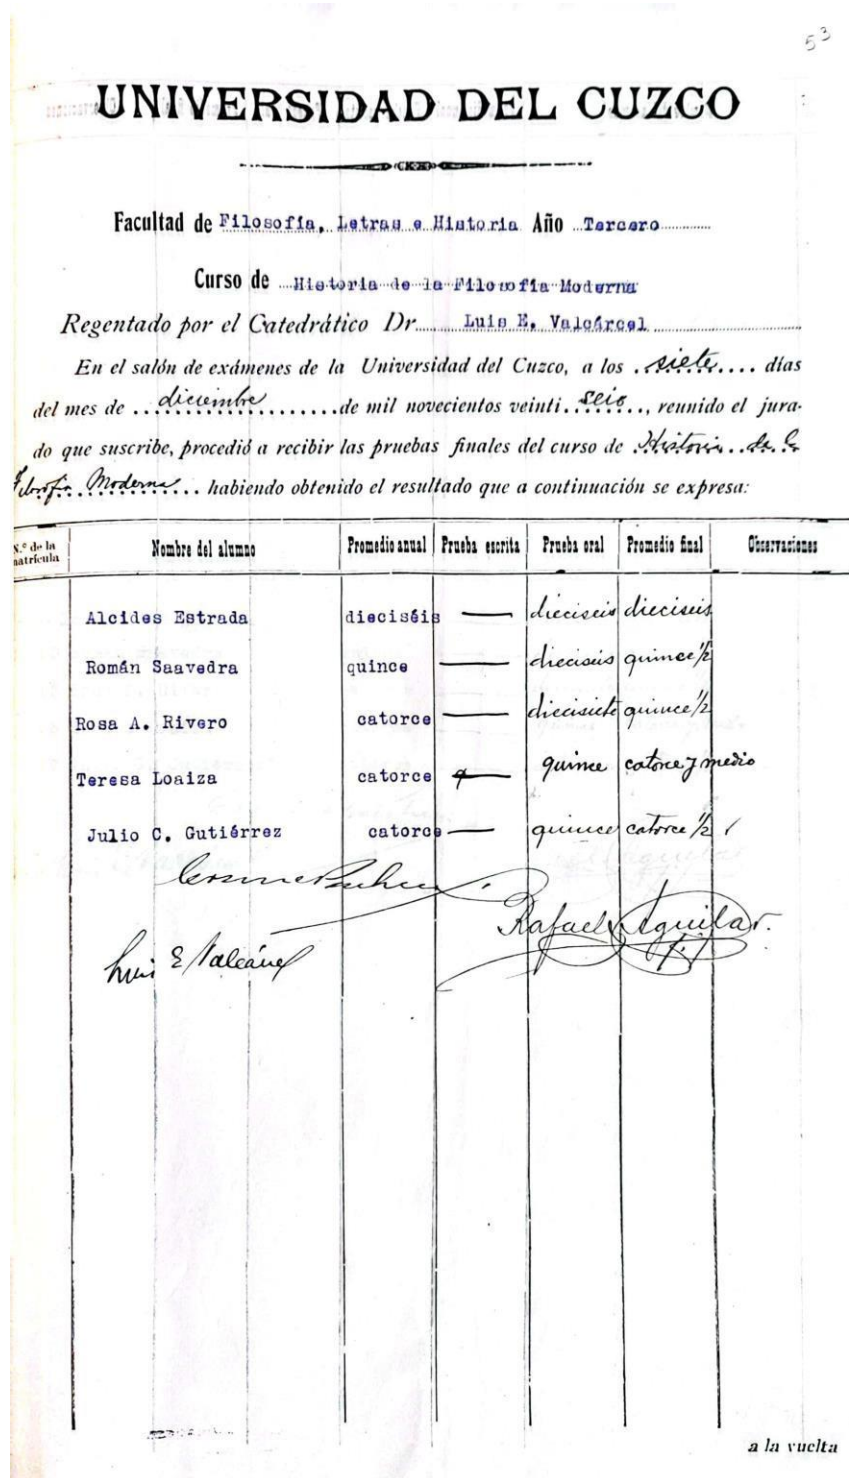 53
UNIVERSIDAD DEL CUZCO
Facultad de Filosofía, Letras e Historia Año Tercero
Curso de Historia de la Filosofía Moderna
Regentado por el Catedrático Dr. Luis E. Valcárcel
En el salón de exámenes de la Universidad del Cuzco, a los siete días
del mes de diciembre de mil novecientos veinti seis, reunido el jura-
do que suscribe, procedió a recibir las pruebas finales del curso de Historia de la
Filosofía Moderna habiendo obtenido el resultado que a continuación se expresa:
N.º de la matrícula Nombre del alumno Promedio anual Prueba escrita Prueba oral Promedio final Observaciones
Alcides Estrada dieciséis — dieciseis dieciseis
Román Saavedra quince — dieciseis quince 1/2
Rosa A. Rivero catorce — diecisiete quince 1/2
Teresa Loaiza catorce — quince catorce y medio
Julio C. Gutiérrez catorce — quince catorce 1/2
Cosme
Rafael Aguilar
Luis E Valcárcel
a la vuelta